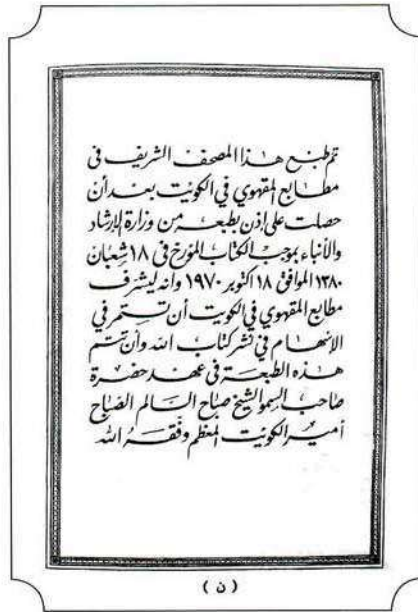 تم طبع هذا المصحف الشريف في
مطابع المقهوي في الكويت بعد أن
حصلت على إذن بطبعه من وزارة الإرشاد
والأنباء بموجب الكتاب المؤرخ في ١٨ شعبان
١٣٨٠ الموافق ١٨ اكتوبر ١٩٧٠ وانه ليشرف
مطابع المقهوي في الكويت أن تستمر في
الاسهام في نشر كتاب الله وأن تتم
هذه الطبعة في عهد حضرة
صاحب السمو الشيخ صباح السالم الصباح
أمير الكويت المعظم وفقه الله
( ن )